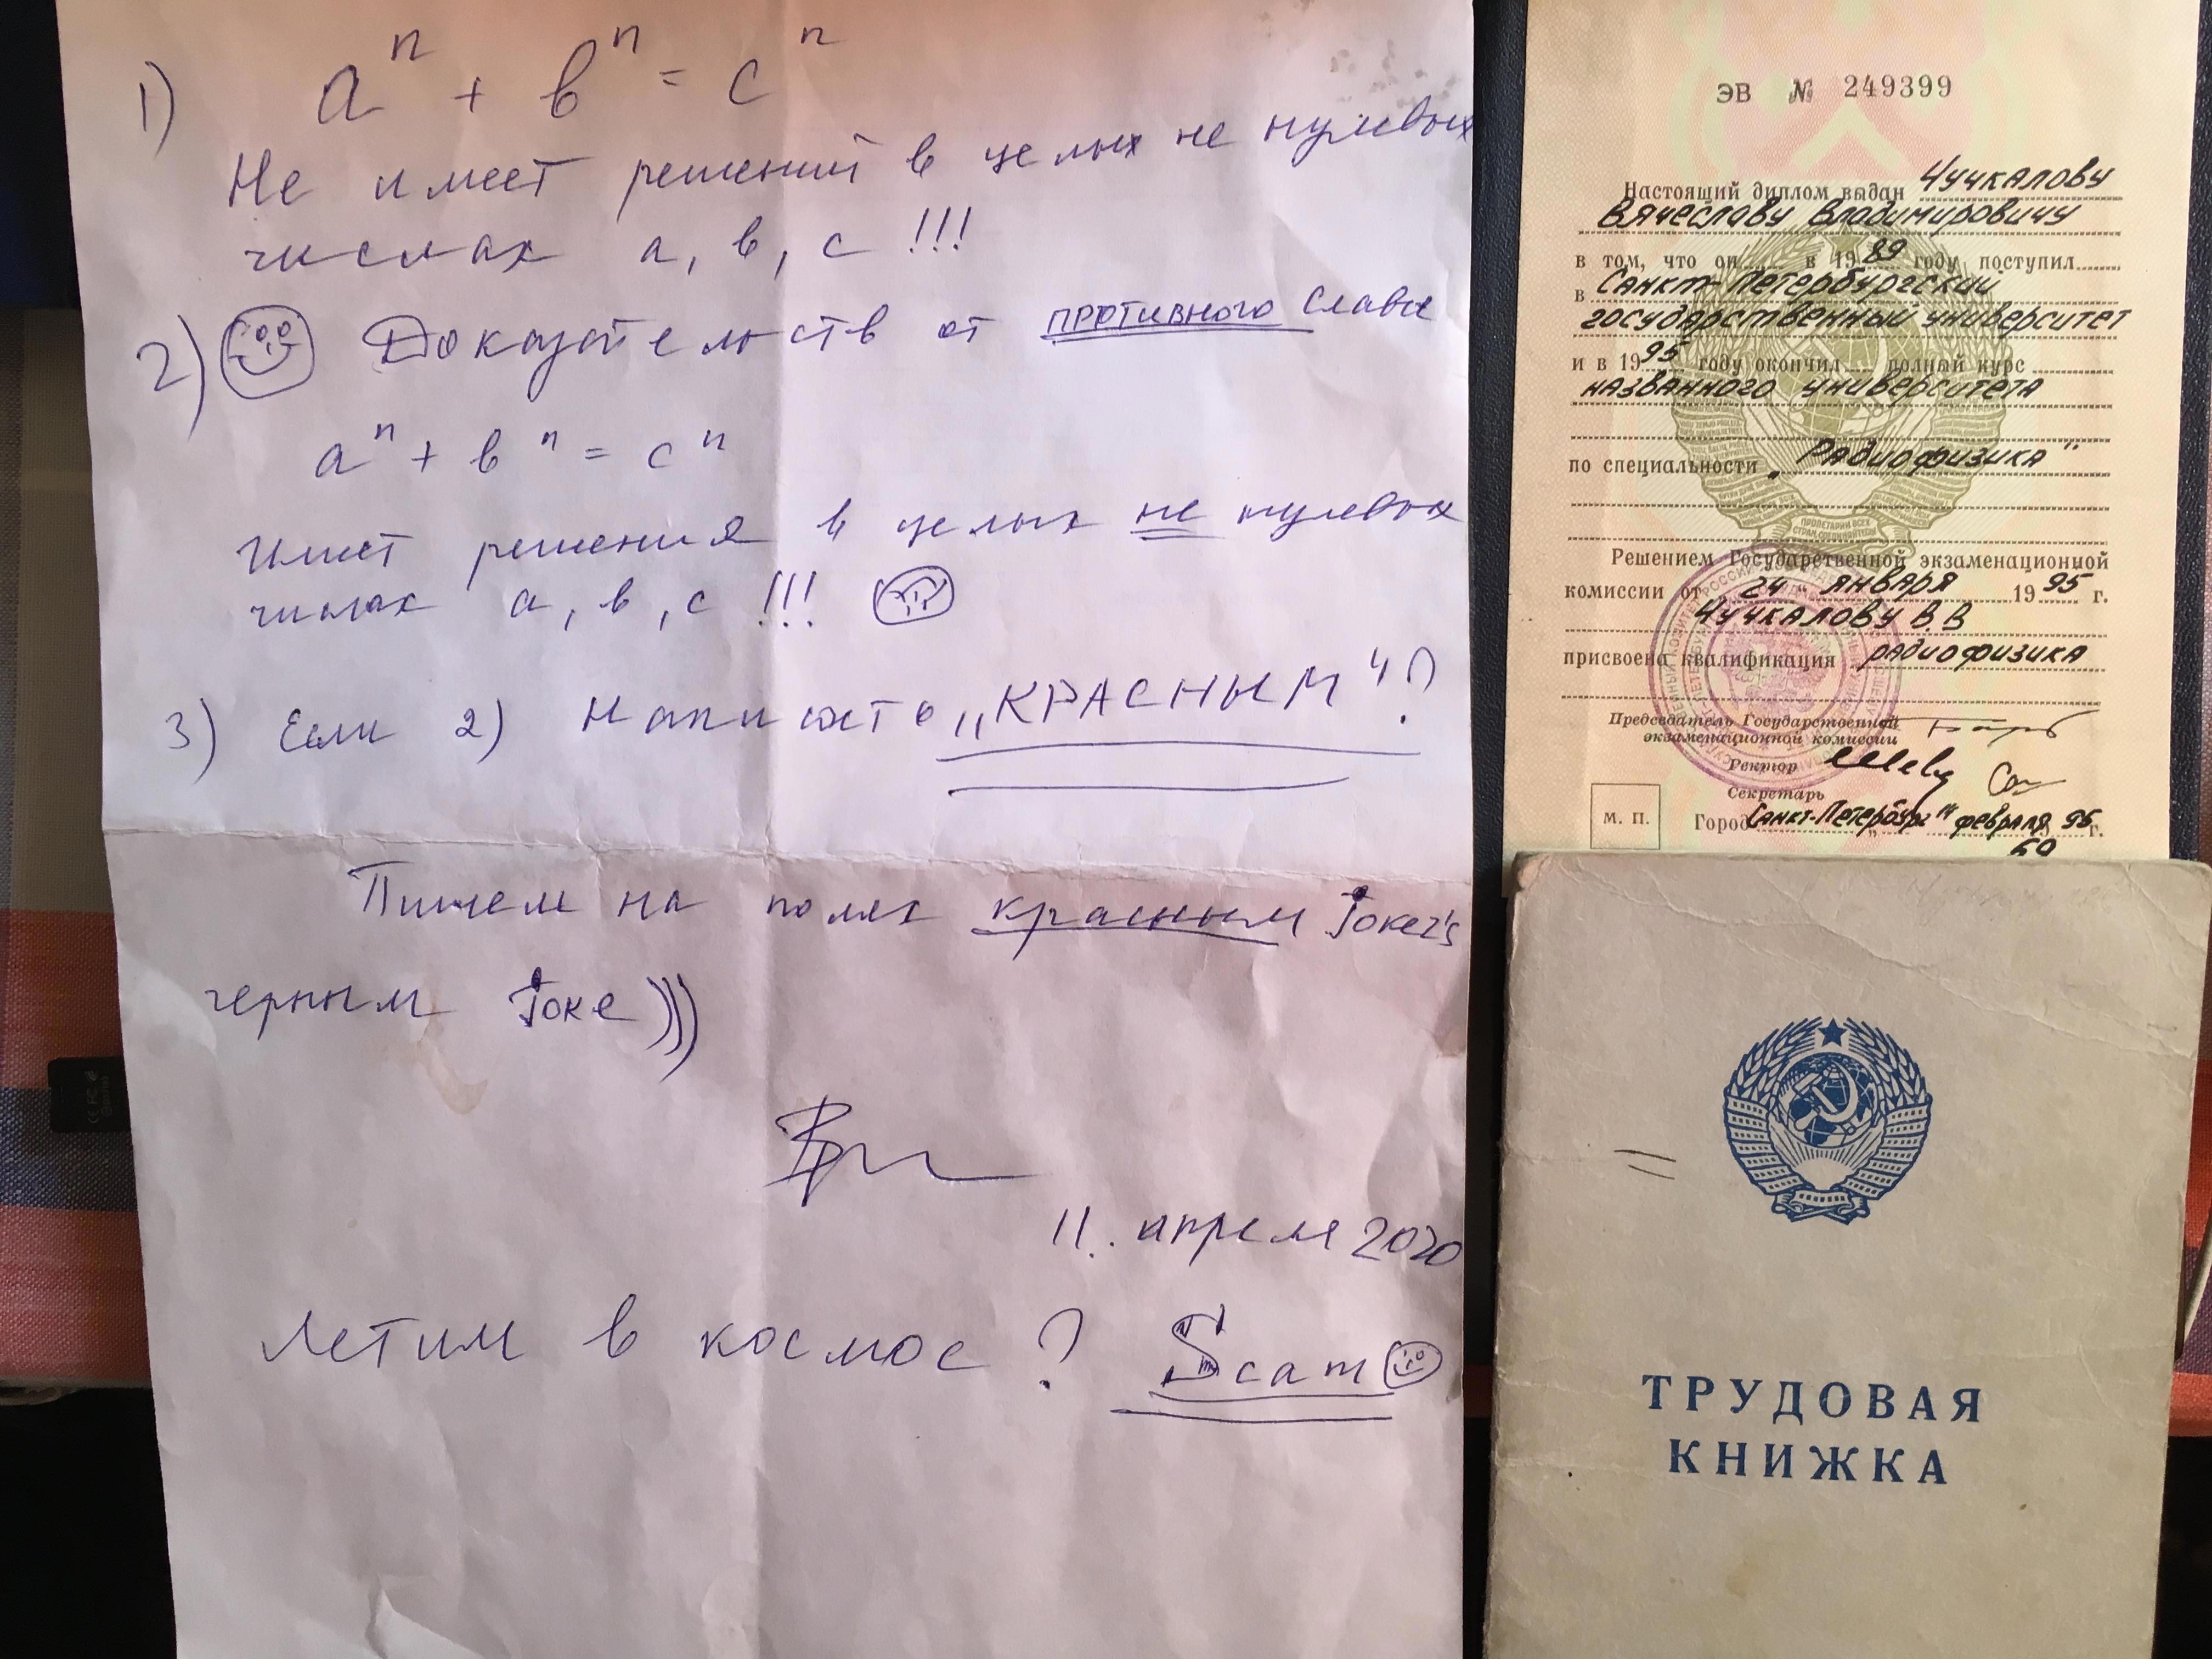 1) aⁿ + вⁿ = cⁿ
Не имеет решений в целых не нулевых
числах a, в, c !!!
2) Доказательств от противного Славы
aⁿ + вⁿ = cⁿ
Имеет решения в целых не нулевых
числах a, в, c !!!
3) Если 2) Написать „КРАСНЫМ“?
Пишем на полях красным Joker's
черным Joke)))
11. апреля 2020
Летим в космос? Scam
ЭВ № 249399
Настоящий диплом выдан Чучкалову
Вячеславу Владимировичу
в том, что он в 1989 году поступил
в Санкт-Петербургский
государственный университет
и в 1995 году окончил полный курс
названного университета
по специальности „Радиофизика"
ПРОЛЕТАРИИ ВСЕХ СТРАН, СОЕДИНЯЙТЕСЬ!
Решением Государственной экзаменационной
комиссии от 24 января 1995 г.
Чучкалову В.В
присвоена квалификация радиофизика
Председатель Государственной
экзаменационной комиссии
Ректор
Секретарь
М. П.
Город Санкт-Петербург " февраля 95 г.
69
ТРУДОВАЯ
КНИЖКА